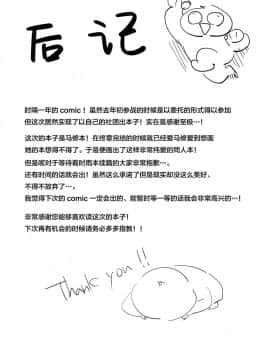 后记
时隔一年的comic！虽然去年初参战的时候是以委托的形式得以参加
但这次居然实现了以自己的社团出本子！实在是感谢至极…！
这次的本子是马修本！在终章完结的时候就已经爱马修爱到想画
她的本想得不得了。于是便画出了这样非常托爱的同人本！
但是呢对于等待着时雨本续篇的大家非常抱歉…。
还有时间的话我会出！虽然这么承诺了但是现实却没这么美好、
不得不放弃了…。
我觉得下次的comic一定会出的、能暂时等一等的话我会非常高兴的…！
非常感谢您能够喜欢读这次的本子！
下次再有机会的时候请务必多多指教！！
Thank you!!